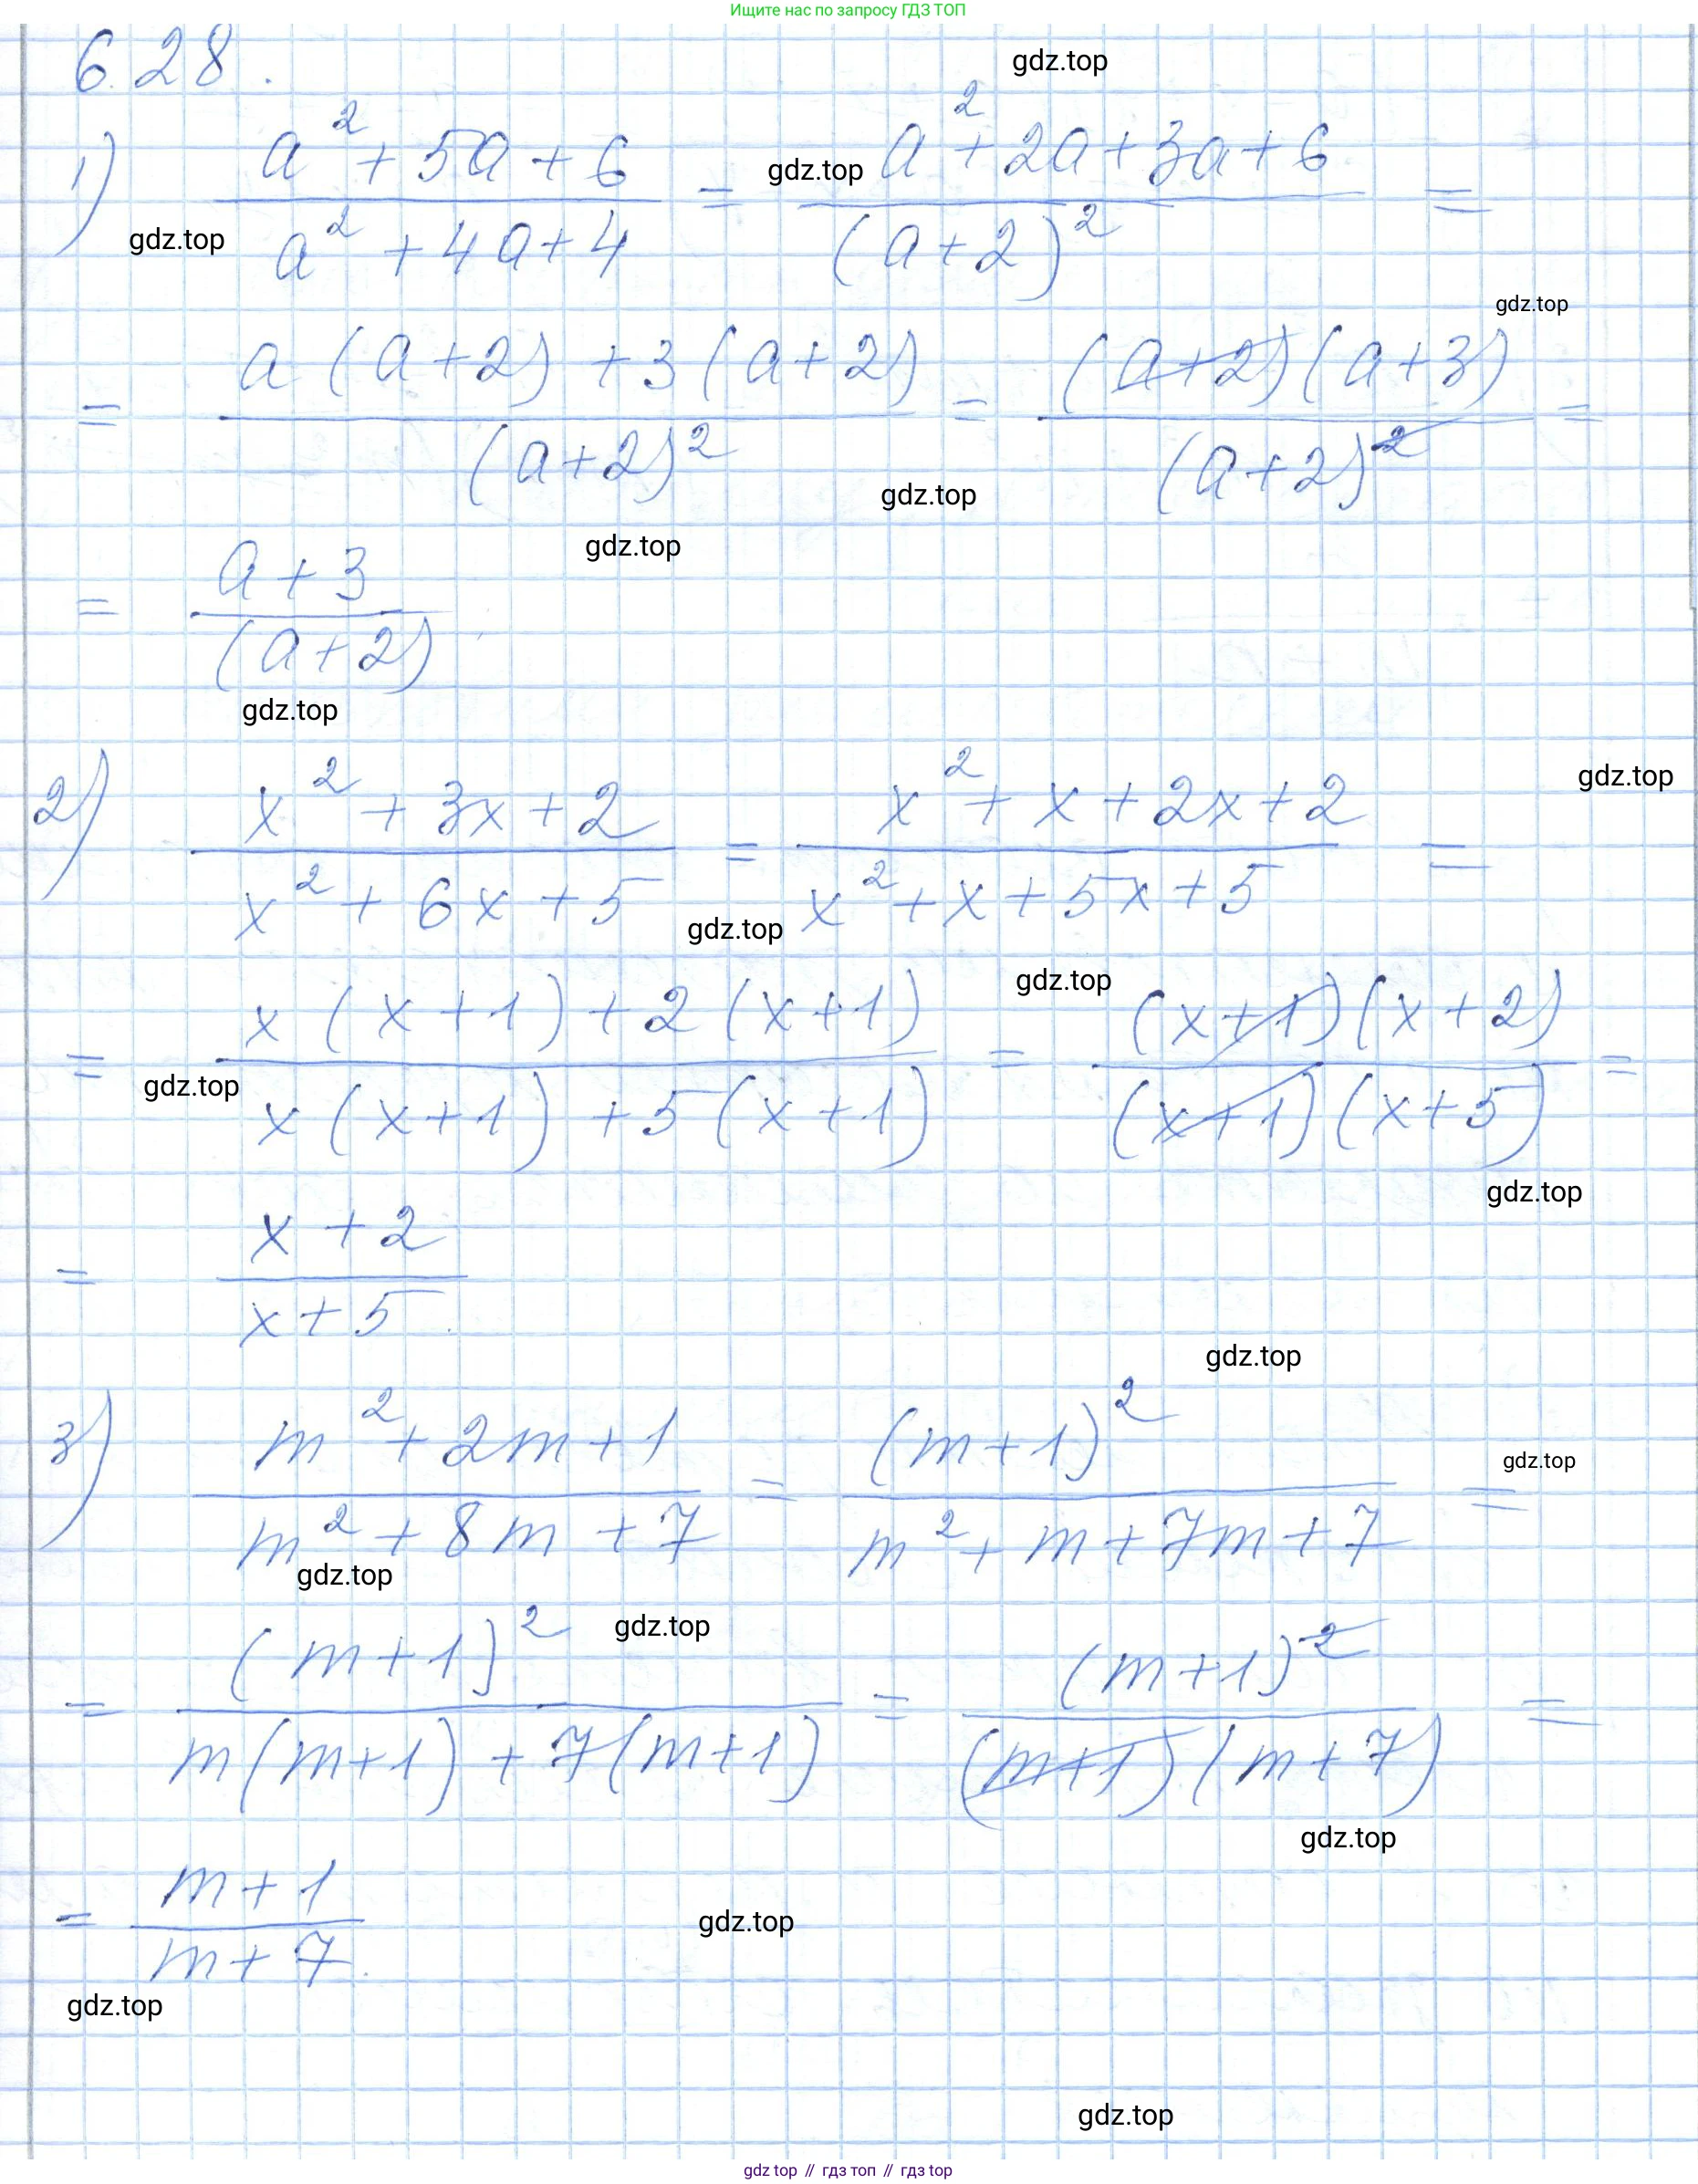 Ищите нас по запросу ГДЗ ТОП
6.28.
gdz.top
1) (a² + 5a + 6)/(a² + 4a + 4) = (a² + 2a + 3a + 6)/(a + 2)² =
gdz.top
gdz.top
gdz.top
= (a(a + 2) + 3(a + 2))/(a + 2)² = ((a + 2)(a + 3))/(a + 2)² =
gdz.top
gdz.top
= (a + 3)/(a + 2)
gdz.top
gdz.top
2) (x² + 3x + 2)/(x² + 6x + 5) = (x² + x + 2x + 2)/(x² + x + 5x + 5) =
gdz.top
gdz.top
= (x(x + 1) + 2(x + 1))/(x(x + 1) + 5(x + 1)) = ((x + 1)(x + 2))/((x + 1)(x + 5)) =
gdz.top
gdz.top
= (x + 2)/(x + 5).
gdz.top
3) (m² + 2m + 1)/(m² + 8m + 7) = (m + 1)²/(m² + m + 7m + 7) =
gdz.top
gdz.top
gdz.top
= (m + 1)²/(m(m + 1) + 7(m + 1)) = (m + 1)²/((m + 1)(m + 7)) =
gdz.top
= (m + 1)/(m + 7).
gdz.top
gdz.top
gdz.top
gdz top // гдз топ // гдз top